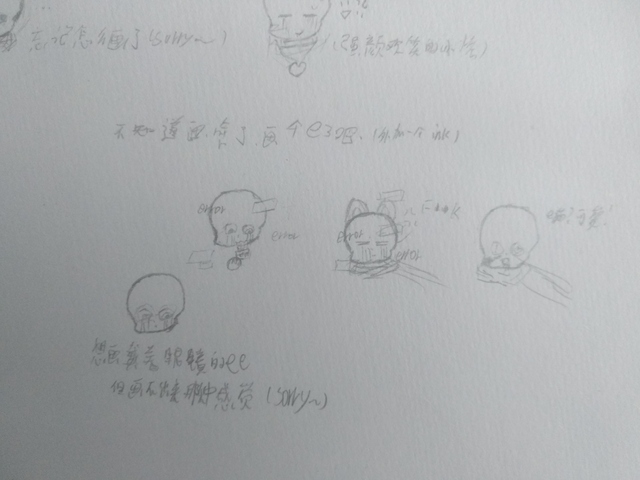 忘记怎么画了(sorry~)
(强颜欢笑的小怂)
不知道画啥了,画个e3吧.(外加一个ink)
error
error
error
error
F**K
想画戴着眼镜的ee
但画不出那种感觉(sorry~)